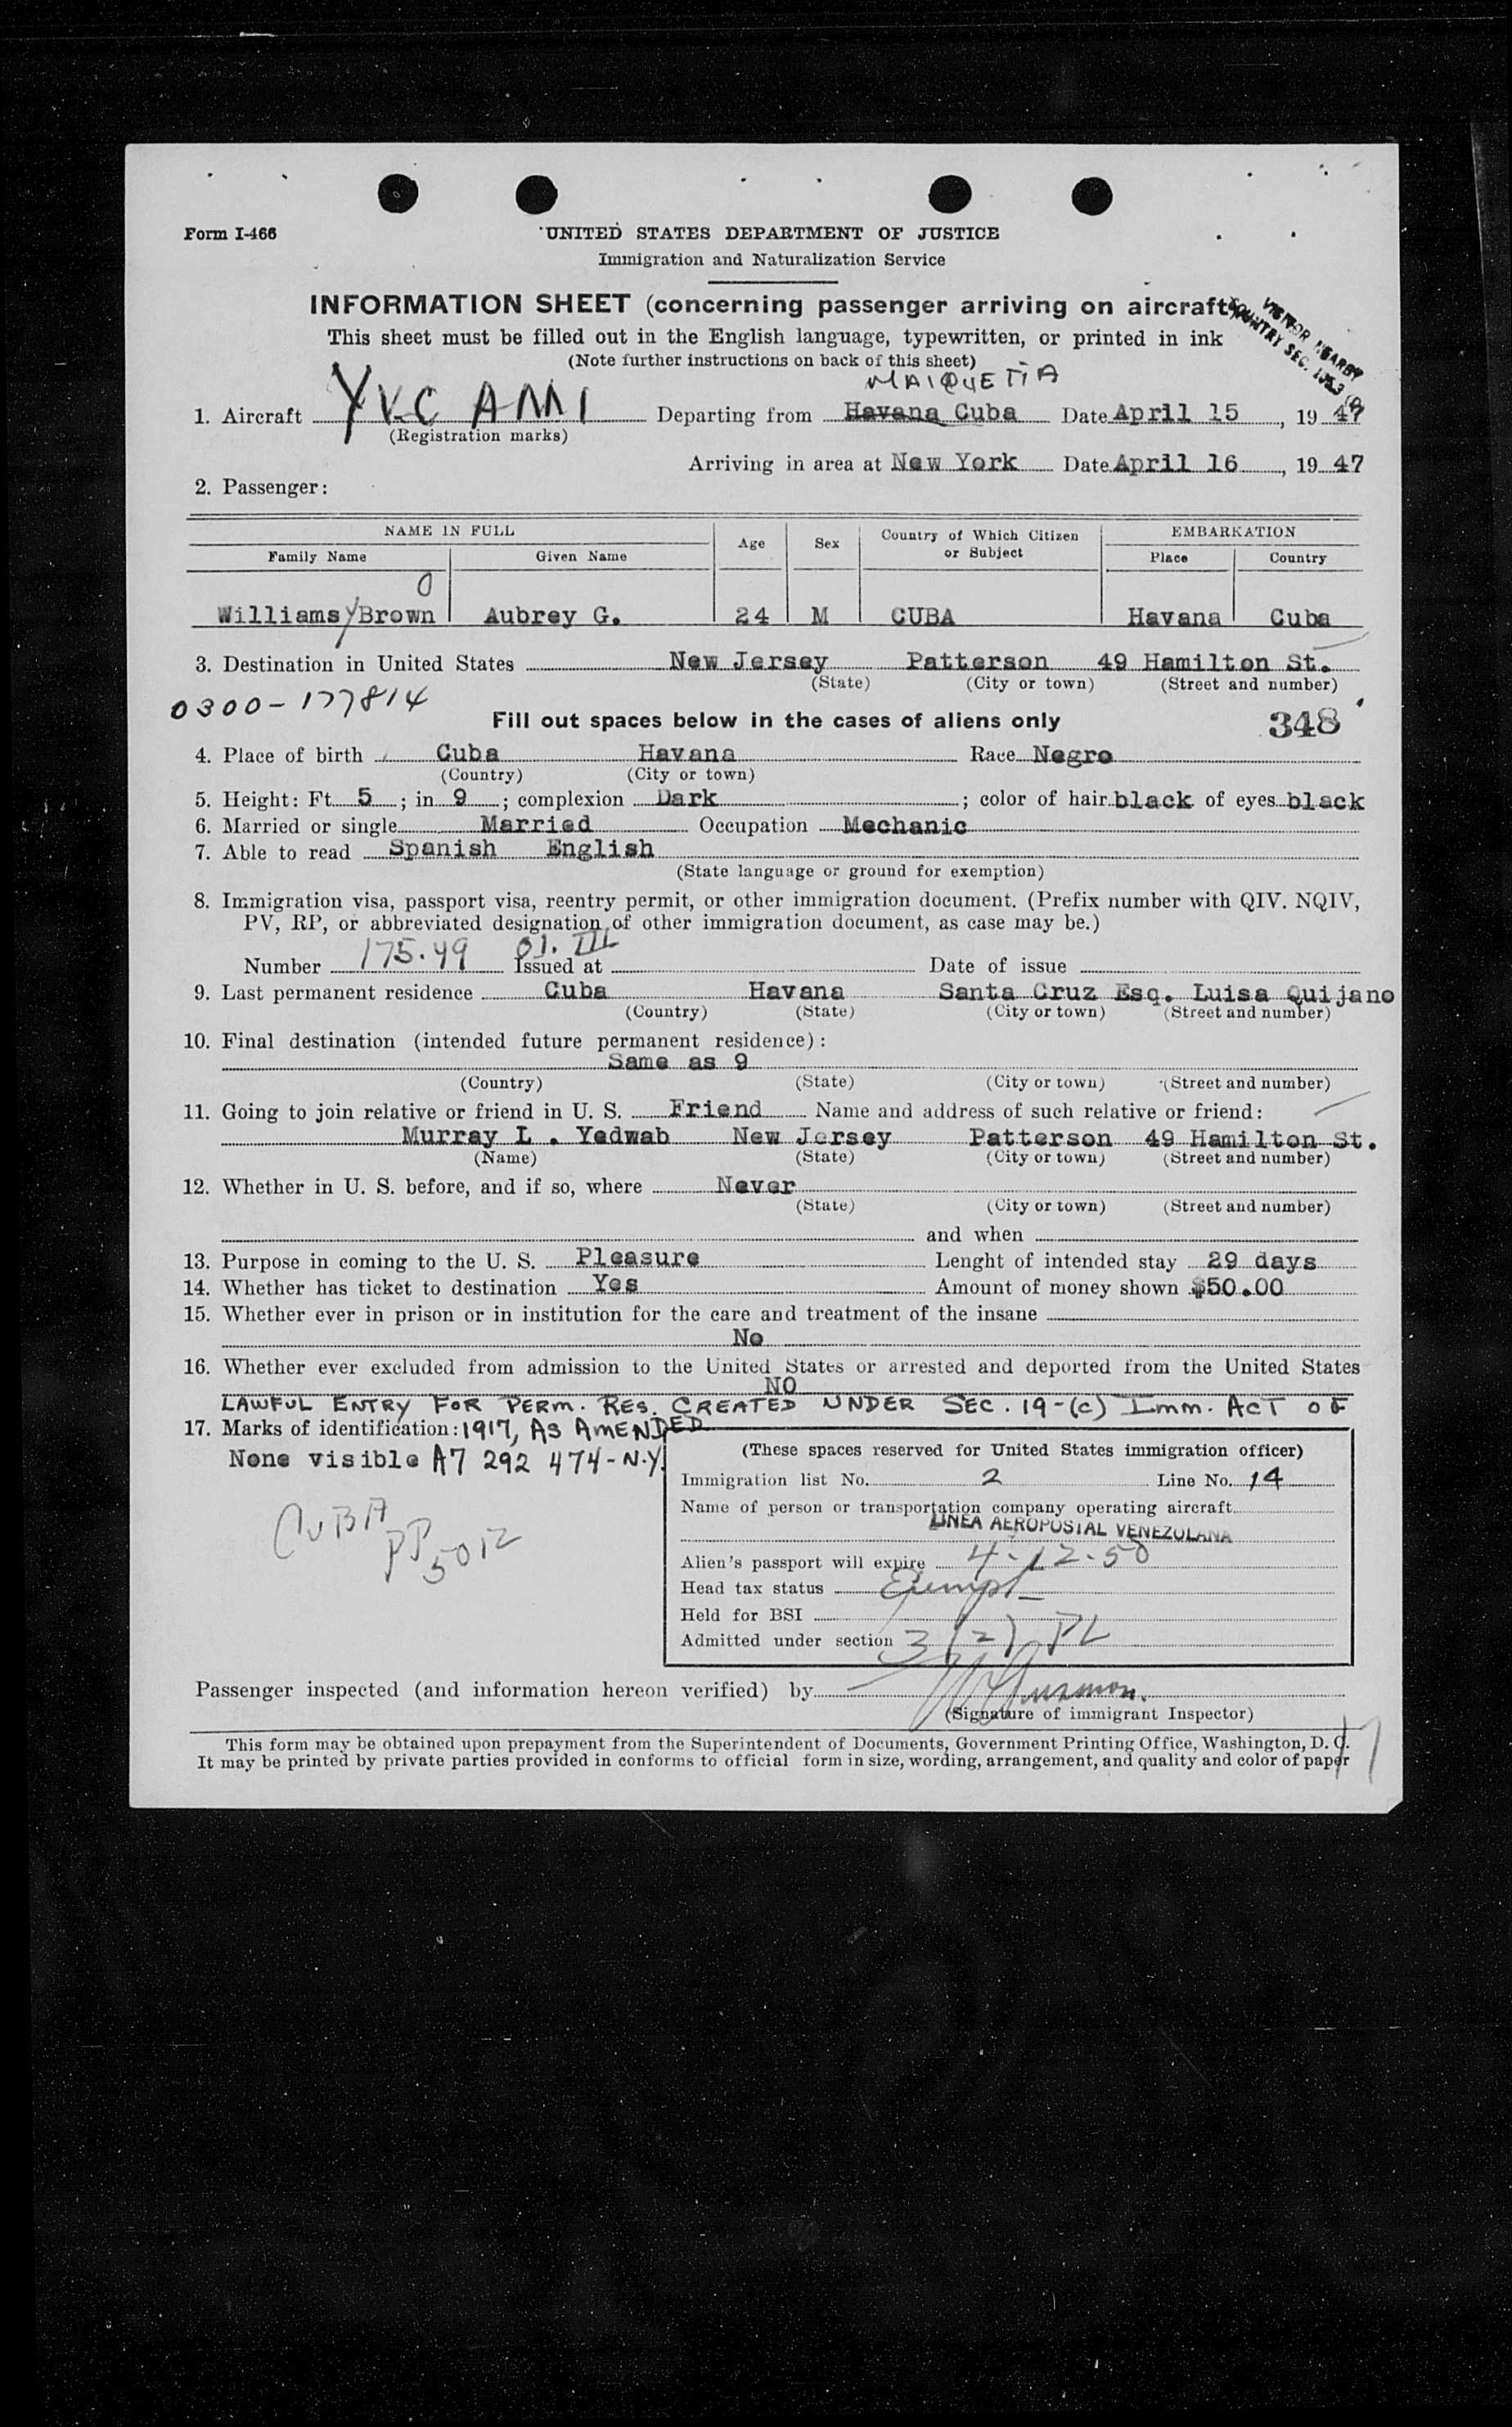 Form I-466
UNITED STATES DEPARTMENT OF JUSTICE
Immigration and Naturalization Service
INFORMATION SHEET (concerning passenger arriving on aircraft)
VISITOR NEARBY
COUNTRY SEC.
This sheet must be filled out in the English language, typewritten, or printed in ink
(Note further instructions on back of this sheet)
MAIQUETIA
1. Aircraft YVC AMI Departing from Havana Cuba Date April 15, 19 47
(Registration marks)
Arriving in area at New York Date April 16, 19 47
2. Passenger:
NAME IN FULL Age Sex Country of Which Citizen or Subject EMBARKATION
Family Name Given Name Place Country
0
Williams y Brown Aubrey G. 24 M CUBA Havana Cuba
3. Destination in United States New Jersey Patterson 49 Hamilton St.
(State) (City or town) (Street and number)
0300-177814
Fill out spaces below in the cases of aliens only 348
4. Place of birth Cuba Havana Race Negro
(Country) (City or town)
5. Height: Ft. 5; in 9; complexion Dark; color of hair black of eyes black
6. Married or single Married Occupation Mechanic
7. Able to read Spanish English
(State language or ground for exemption)
8. Immigration visa, passport visa, reentry permit, or other immigration document. (Prefix number with QIV. NQIV,
PV, RP, or abbreviated designation of other immigration document, as case may be.)
Number 175.49 Issued at Date of issue
9. Last permanent residence Cuba Havana Santa Cruz Esq. Luisa Quijano
(Country) (State) (City or town) (Street and number)
10. Final destination (intended future permanent residence):
Same as 9
(Country) (State) (City or town) (Street and number)
11. Going to join relative or friend in U. S. Friend Name and address of such relative or friend:
Murray L . Yedwab New Jersey Patterson 49 Hamilton St.
(Name) (State) (City or town) (Street and number)
12. Whether in U. S. before, and if so, where Never
(State) (City or town) (Street and number)
and when
13. Purpose in coming to the U. S. Pleasure Lenght of intended stay 29 days
14. Whether has ticket to destination Yes Amount of money shown $50.00
15. Whether ever in prison or in institution for the care and treatment of the insane
No
16. Whether ever excluded from admission to the United States or arrested and deported from the United States
NO
LAWFUL ENTRY FOR PERM. RES. CREATED UNDER SEC. 19-(c) Imm. ACT OF
17. Marks of identification: 1917, AS AMENDED
None visible A7 292 474-N.Y.
CUBA
PP 5012
(These spaces reserved for United States immigration officer)
Immigration list No. 2 Line No. 14
Name of person or transportation company operating aircraft
LINEA AEROPOSTAL VENEZOLANA
Alien's passport will expire 4-12-50
Head tax status Exempt
Held for BSI
Admitted under section 3(2) PL
Passenger inspected (and information hereon verified) by
(Signature of immigrant Inspector)
This form may be obtained upon prepayment from the Superintendent of Documents, Government Printing Office, Washington, D. C.
It may be printed by private parties provided in conforms to official form in size, wording, arrangement, and quality and color of paper